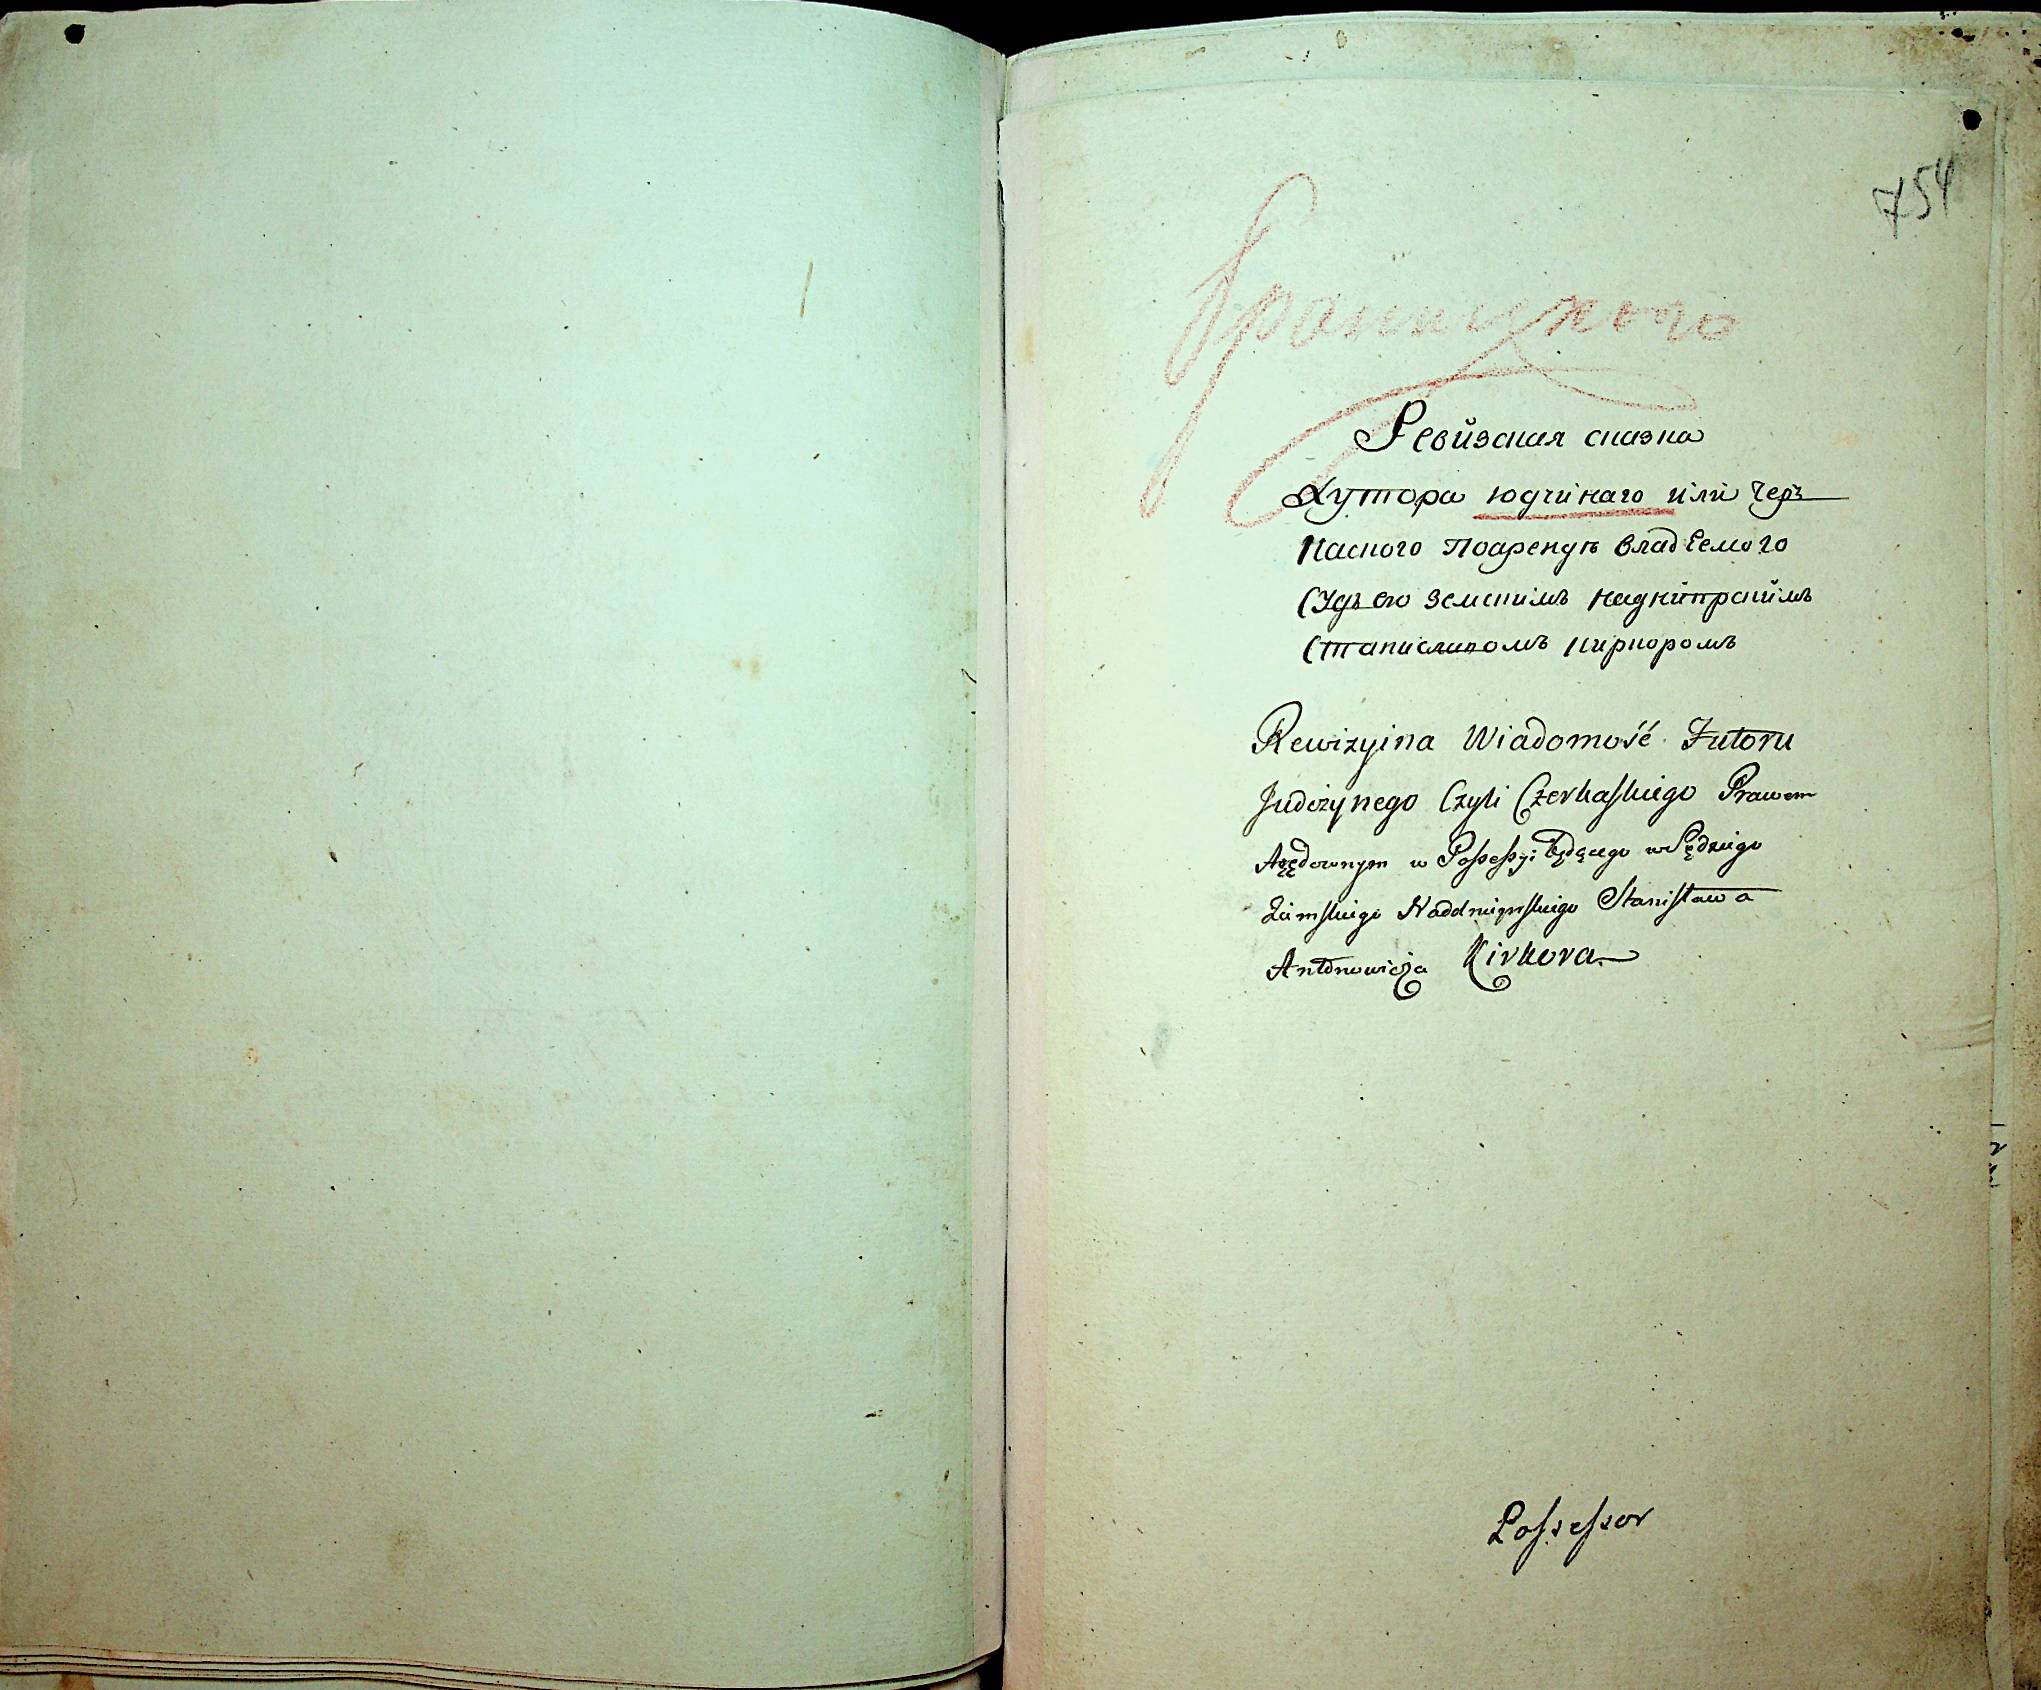 754
Браницкого
Ревизская сказка
Хутора юдчинаго или Чер=
касного По аренде владѣемого
Судъею земскимъ наднипрскимъ
Станиславомъ Киркоромъ
Rewizyina Wiadomość Futoru
Judczynego Czyli Czerkaskiego Prawem
Arędownym w Possessyi będącego w Sędziego
Ziemskiego Naddnieprskiego Stanisława
Antonowicza Kirkora
Possessor